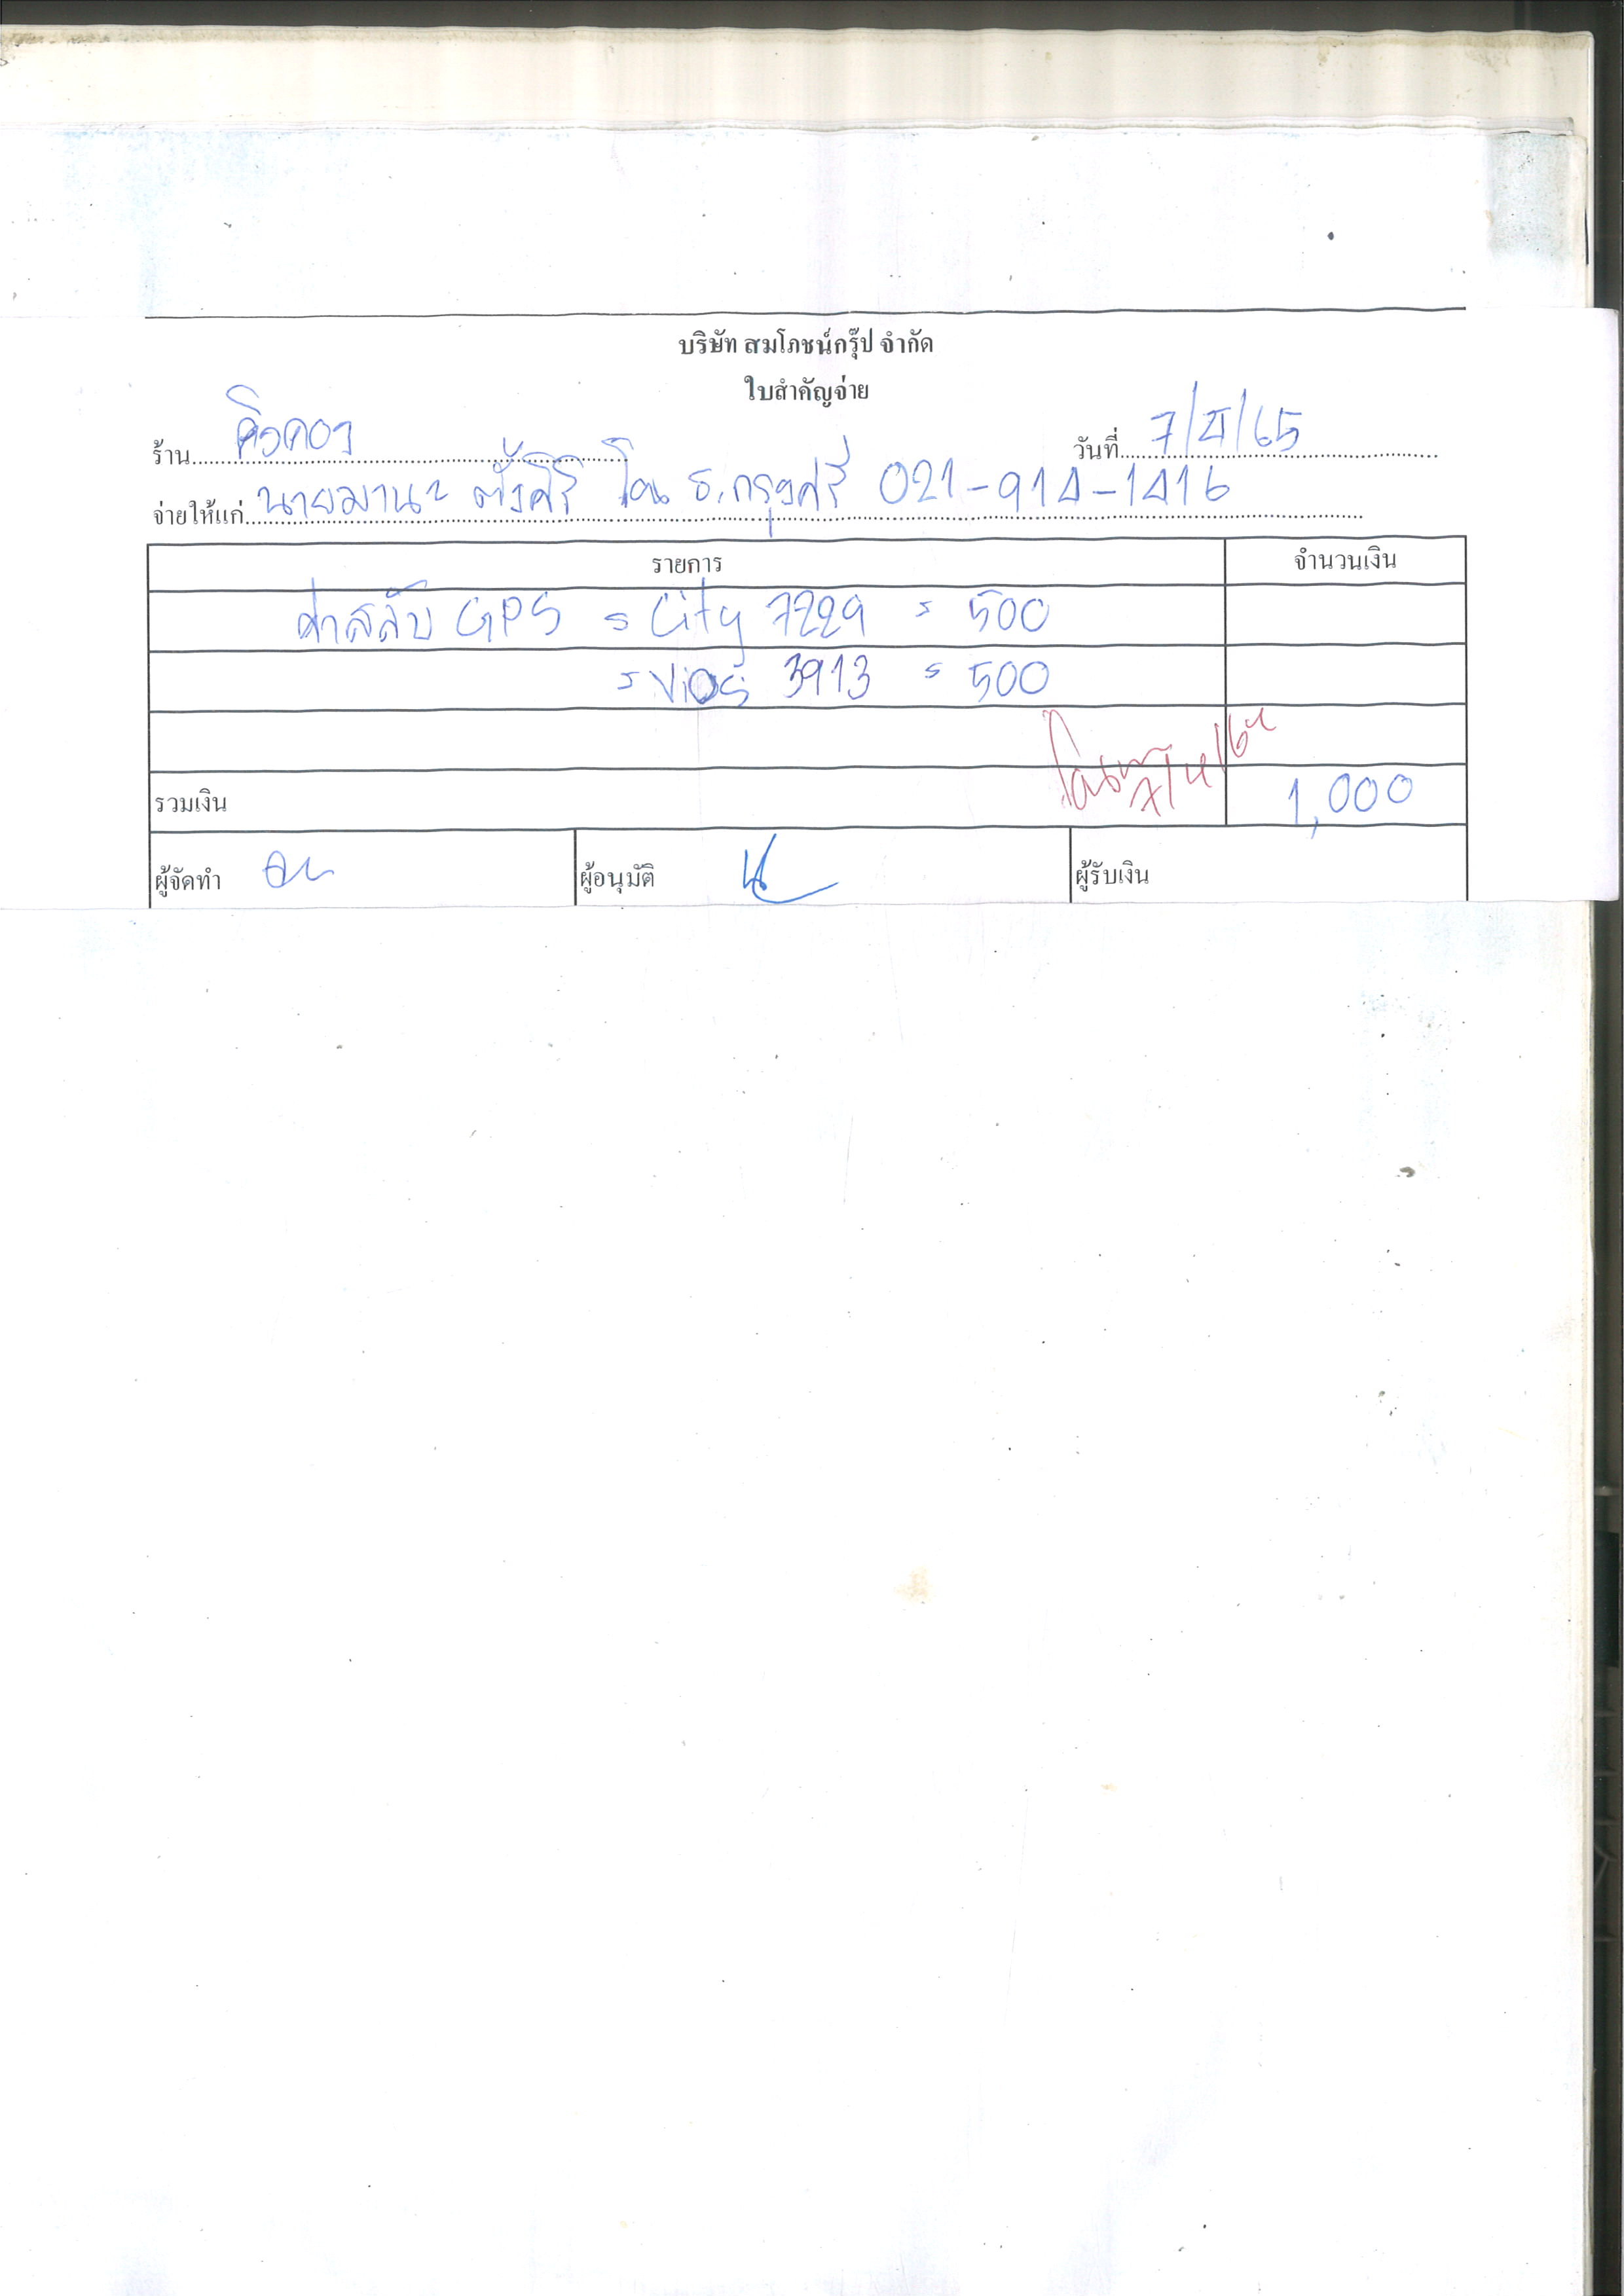 บริษัท สมโภชน์กรุ๊ป จำกัด
ใบสำคัญจ่าย
ร้าน คิวคอง วันที่ 7/4/65
จ่ายให้แก่ นายมานะ ตั้งศิริ โอน ธ.กรุงศรี 021-914-1416
รายการ จำนวนเงิน
ค่าสลับ GPS = City 7229 = 500
= Vios 3913 = 500
7/4/65
รวมเงิน 1,000
ผู้จัดทำ ผู้อนุมัติ ผู้รับเงิน